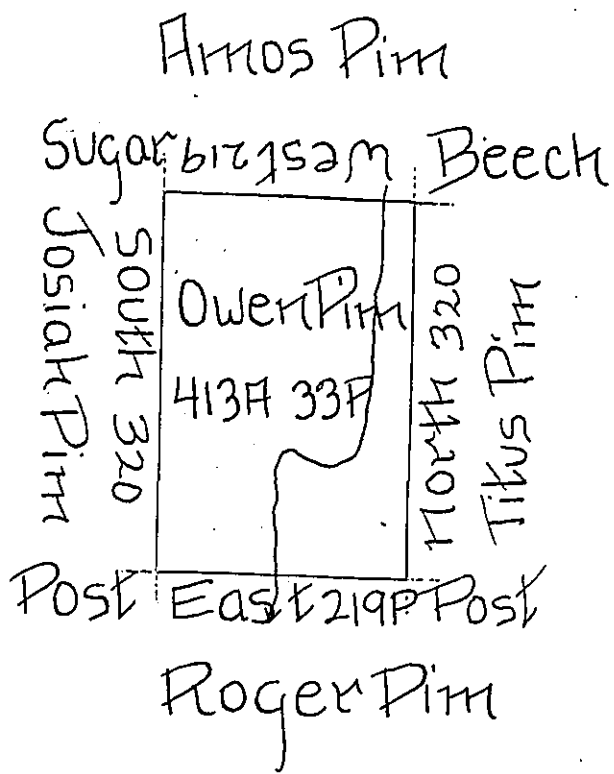 Amos Pim
Sugar West 219 Beech
Josiah Pim
South 320
Owen Pim
413A 33P
North 320
Titus Pim
Post East 219P Post
Roger Pim